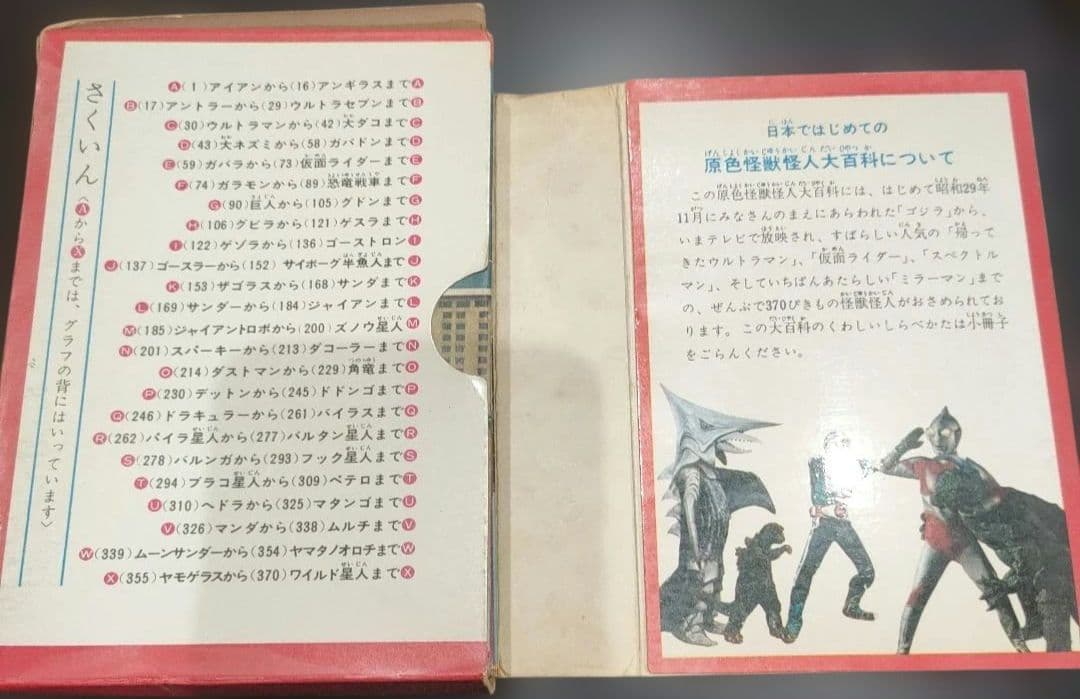 さくいん〈ⒶからⓍまでは、グラフの背にはいっています〉
Ⓐ(1)アイアンから(16)アンギラスまでⒶ
Ⓑ(17)アントラーから(29)ウルトラセブンまでⒷ
Ⓒ(30)ウルトラマンから(42)大ダコまでⒸ
Ⓓ(43)大ネズミから(58)ガバドンまでⒹ
Ⓔ(59)ガバラから(73)仮面ライダーまでⒺ
Ⓕ(74)ガラモンから(89)恐竜戦車までⒻ
Ⓖ(90)巨人から(105)グドンまでⒼ
Ⓗ(106)グビラから(121)ゲスラまでⒽ
Ⓘ(122)ゲゾラから(136)ゴーストロンⒾ
Ⓙ(137)ゴースラーから(152)サイボーグ半魚人までⒿ
Ⓚ(153)ザゴラスから(168)サンダまでⓀ
Ⓛ(169)サンダーから(184)ジャイアンまでⓁ
Ⓜ(185)ジャイアントロボから(200)ズノウ星人Ⓜ
Ⓝ(201)スパーキーから(213)ダコーラーまでⓃ
Ⓞ(214)ダストマンから(229)角竜までⓄ
Ⓟ(230)デットンから(245)ドドンゴまでⓅ
Ⓠ(246)ドラキュラーから(261)バイラスまでⓆ
Ⓡ(262)バイラ星人から(277)バルタン星人までⓇ
Ⓢ(278)バルンガから(293)フック星人までⓈ
Ⓣ(294)ブラコ星人から(309)ペテロまでⓉ
Ⓤ(310)ヘドラから(325)マタンゴまでⓊ
Ⓥ(326)マンダから(338)ムルチまでⓋ
Ⓦ(339)ムーンサンダーから(354)ヤマタノオロチまでⓌ
Ⓧ(355)ヤモゲラスから(370)ワイルド星人までⓍ
日本ではじめての
原色怪獣怪人大百科について
この原色怪獣怪人大百科には、はじめて昭和29年
11月にみなさんのまえにあらわれた「ゴジラ」から、
いまテレビで放映され、すばらしい人気の「帰って
きたウルトラマン」、「仮面ライダー」、「スペクトル
マン」、そしていちばんあたらしい「ミラーマン」まで
の、ぜんぶで370ぴきもの怪獣怪人がおさめられてお
ります。この大百科のくわしいしらべかたは小冊子
をごらんください。